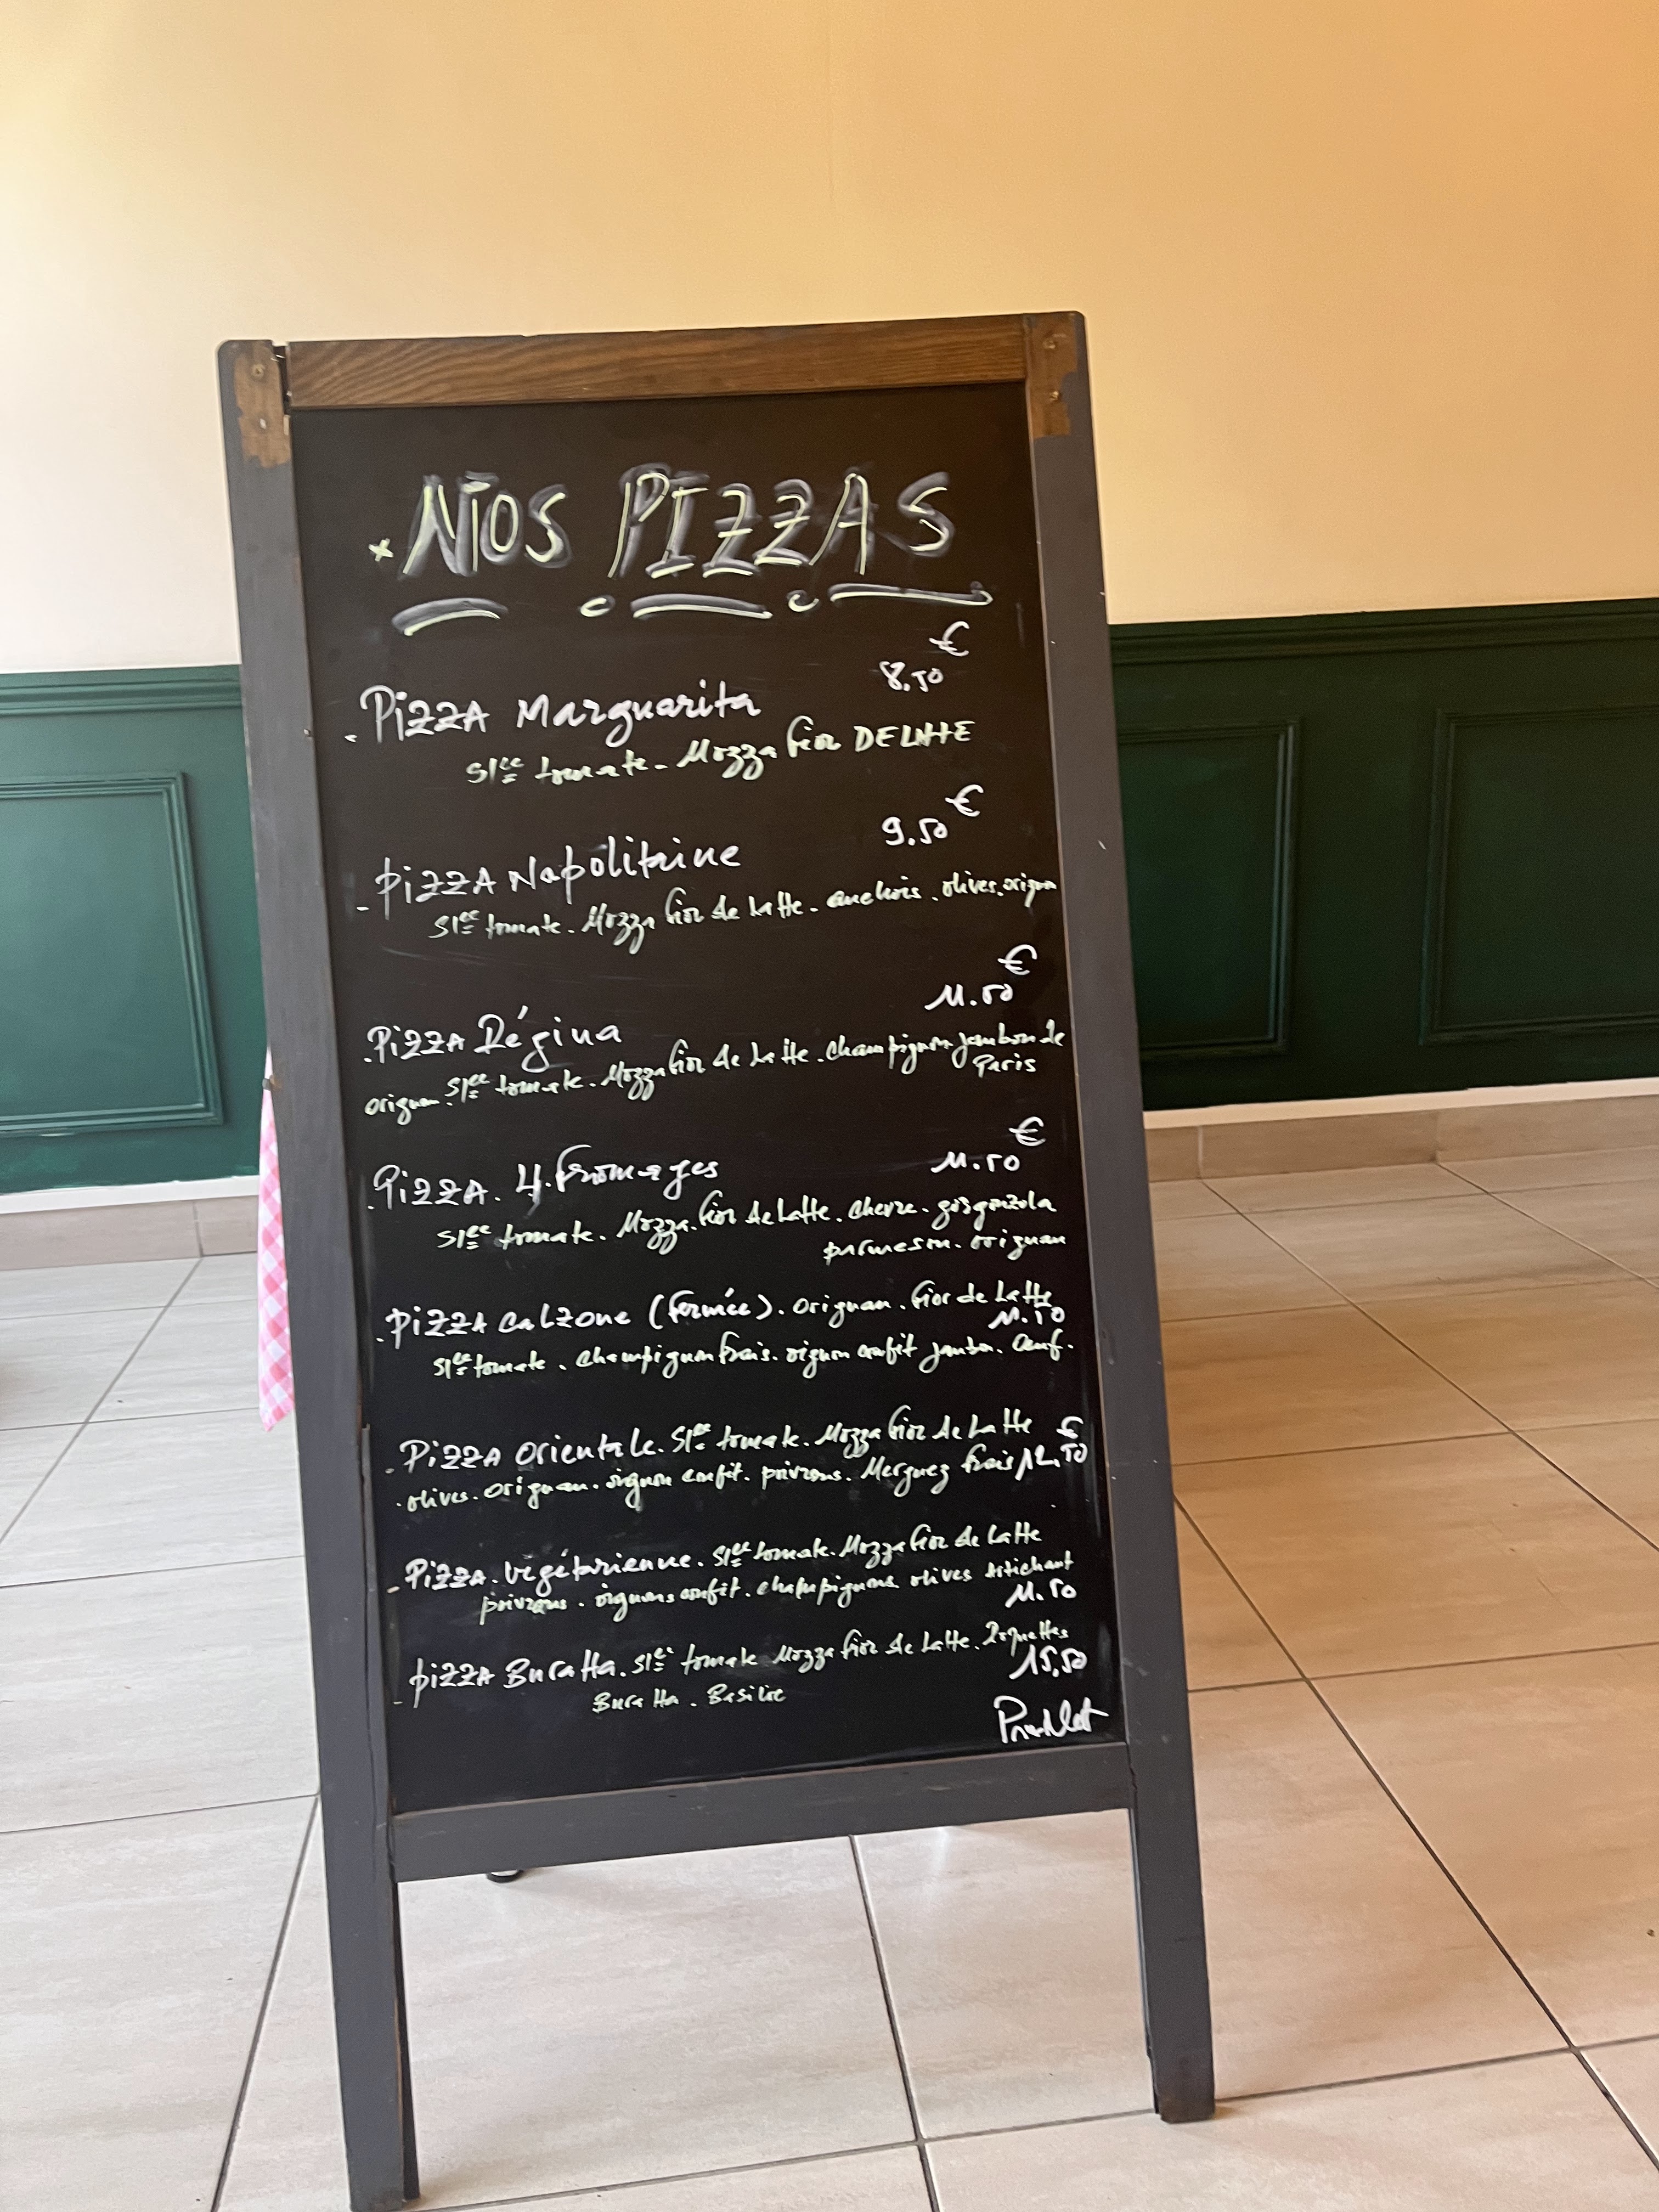 NOS PIZZAS
€
8.50
PIZZA Marguarita
Slce tomate - Mozza fior DE LATTE
€
9.50
PIZZA Napolitaine
Slce tomate. Mozza fior de Latte - anchois. olives. origan
€
11.50
PIZZA Régina
origan. Slce tomate. Mozza fior de Latte. Champignon jambon de
Paris
€
11.50
PIZZA. 4. Fromages
Slce tomate. Mozza. fior de Latte. chevre. gorgonzola
parmesan. origuan
PIZZA Calzone (fermée). origuan. fior de Latte
11.50
Slce tomate. Champignon frais. oignon confit jambon. Œuf.
PIZZA Orientale. Slce tomate. Mozza fior de Latte €
olives. origuan. oignon confit. poivrons. Merguez frais 12.50
PIZZA. végétarienne. Slce tomate. Mozza fior de Latte
poivrons. oignons confit. champignons olives artichaut
11.50
PIZZA Buratta. Slce tomate Mozza fior de Latte. Roquettes
15.50
Buratta. Basilic